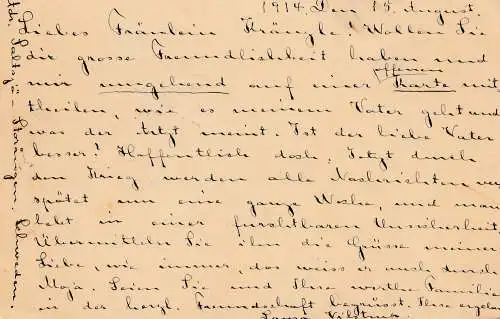 1914. Den 15. August.
Liebes Fräulein Kränzle! Wollen Sie
die grosse Freundlichkeit haben und
mir umgehend auf einer offenen Karte mit
theilen, wie es meinem Vater geht und
was der Arzt meint. Ist der liebe Vater
besser? Hoffentlich doch. Jetzt durch
den Krieg werden alle Nachrichten ver
spätet um eine ganze Woche, und man
lebt in einer furchtbaren Unsicherheit.
Übermitteln Sie ihm die Grüsse meiner
Liebe, wie immer, das weiss er auch durch
Moja. Seien Sie und Ihre werthe Familie
in der herzl. Freundschaft begrüsst. Ihre ergebene
Laura
Adr. Saltsjö-Storängen. Schweden.